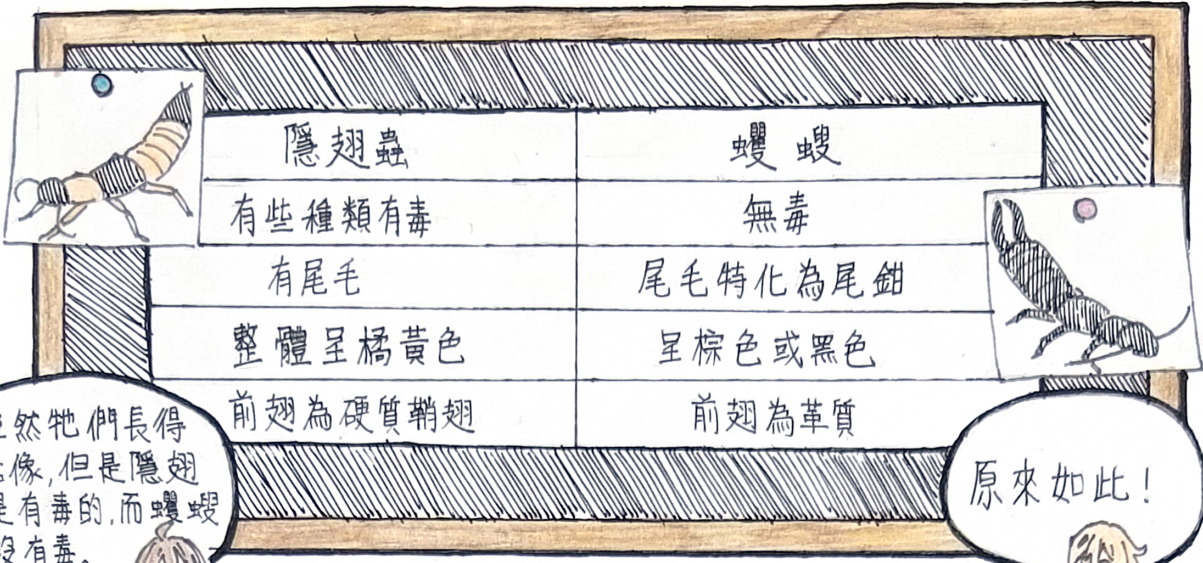 隱翅蟲 蠼螋
有些種類有毒 無毒
有尾毛 尾毛特化為尾鉗
整體呈橘黃色 呈棕色或黑色
前翅為硬質鞘翅 前翅為革質
然牠們長得
像,但是隱翅
是有毒的,而蠼螋
沒有毒。
原來如此!